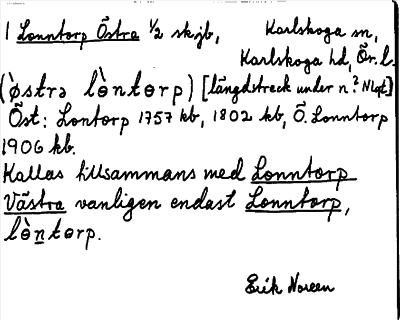 1 Lonntorp Östra ½ skjb, Karlskoga sn,
Karlskoga hd, Ör. l.
(ø̀strə lɵ̀ntɵrp) [längdstreck under n? NLqt]
Öst: Lontorp 1757 kb, 1802 kb, Ö. Lonntorp
1906 kb.
Kallas tillsammans med Lonntorp
Västra vanligen endast Lonntorp,
lɵ̀n̲tɵrp.
Erik Noreen